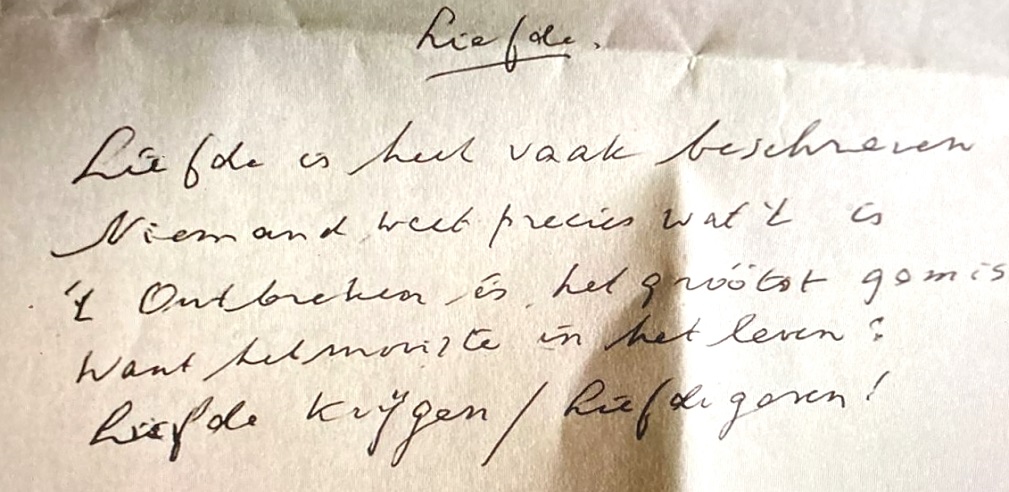 Liefde.
Liefde is heel vaak beschreven
Niemand weet precies wat 't is
't Ontbreken is het gróótst gemis
Want het mooiste in het leven:
Liefde krijgen / Liefde geven!